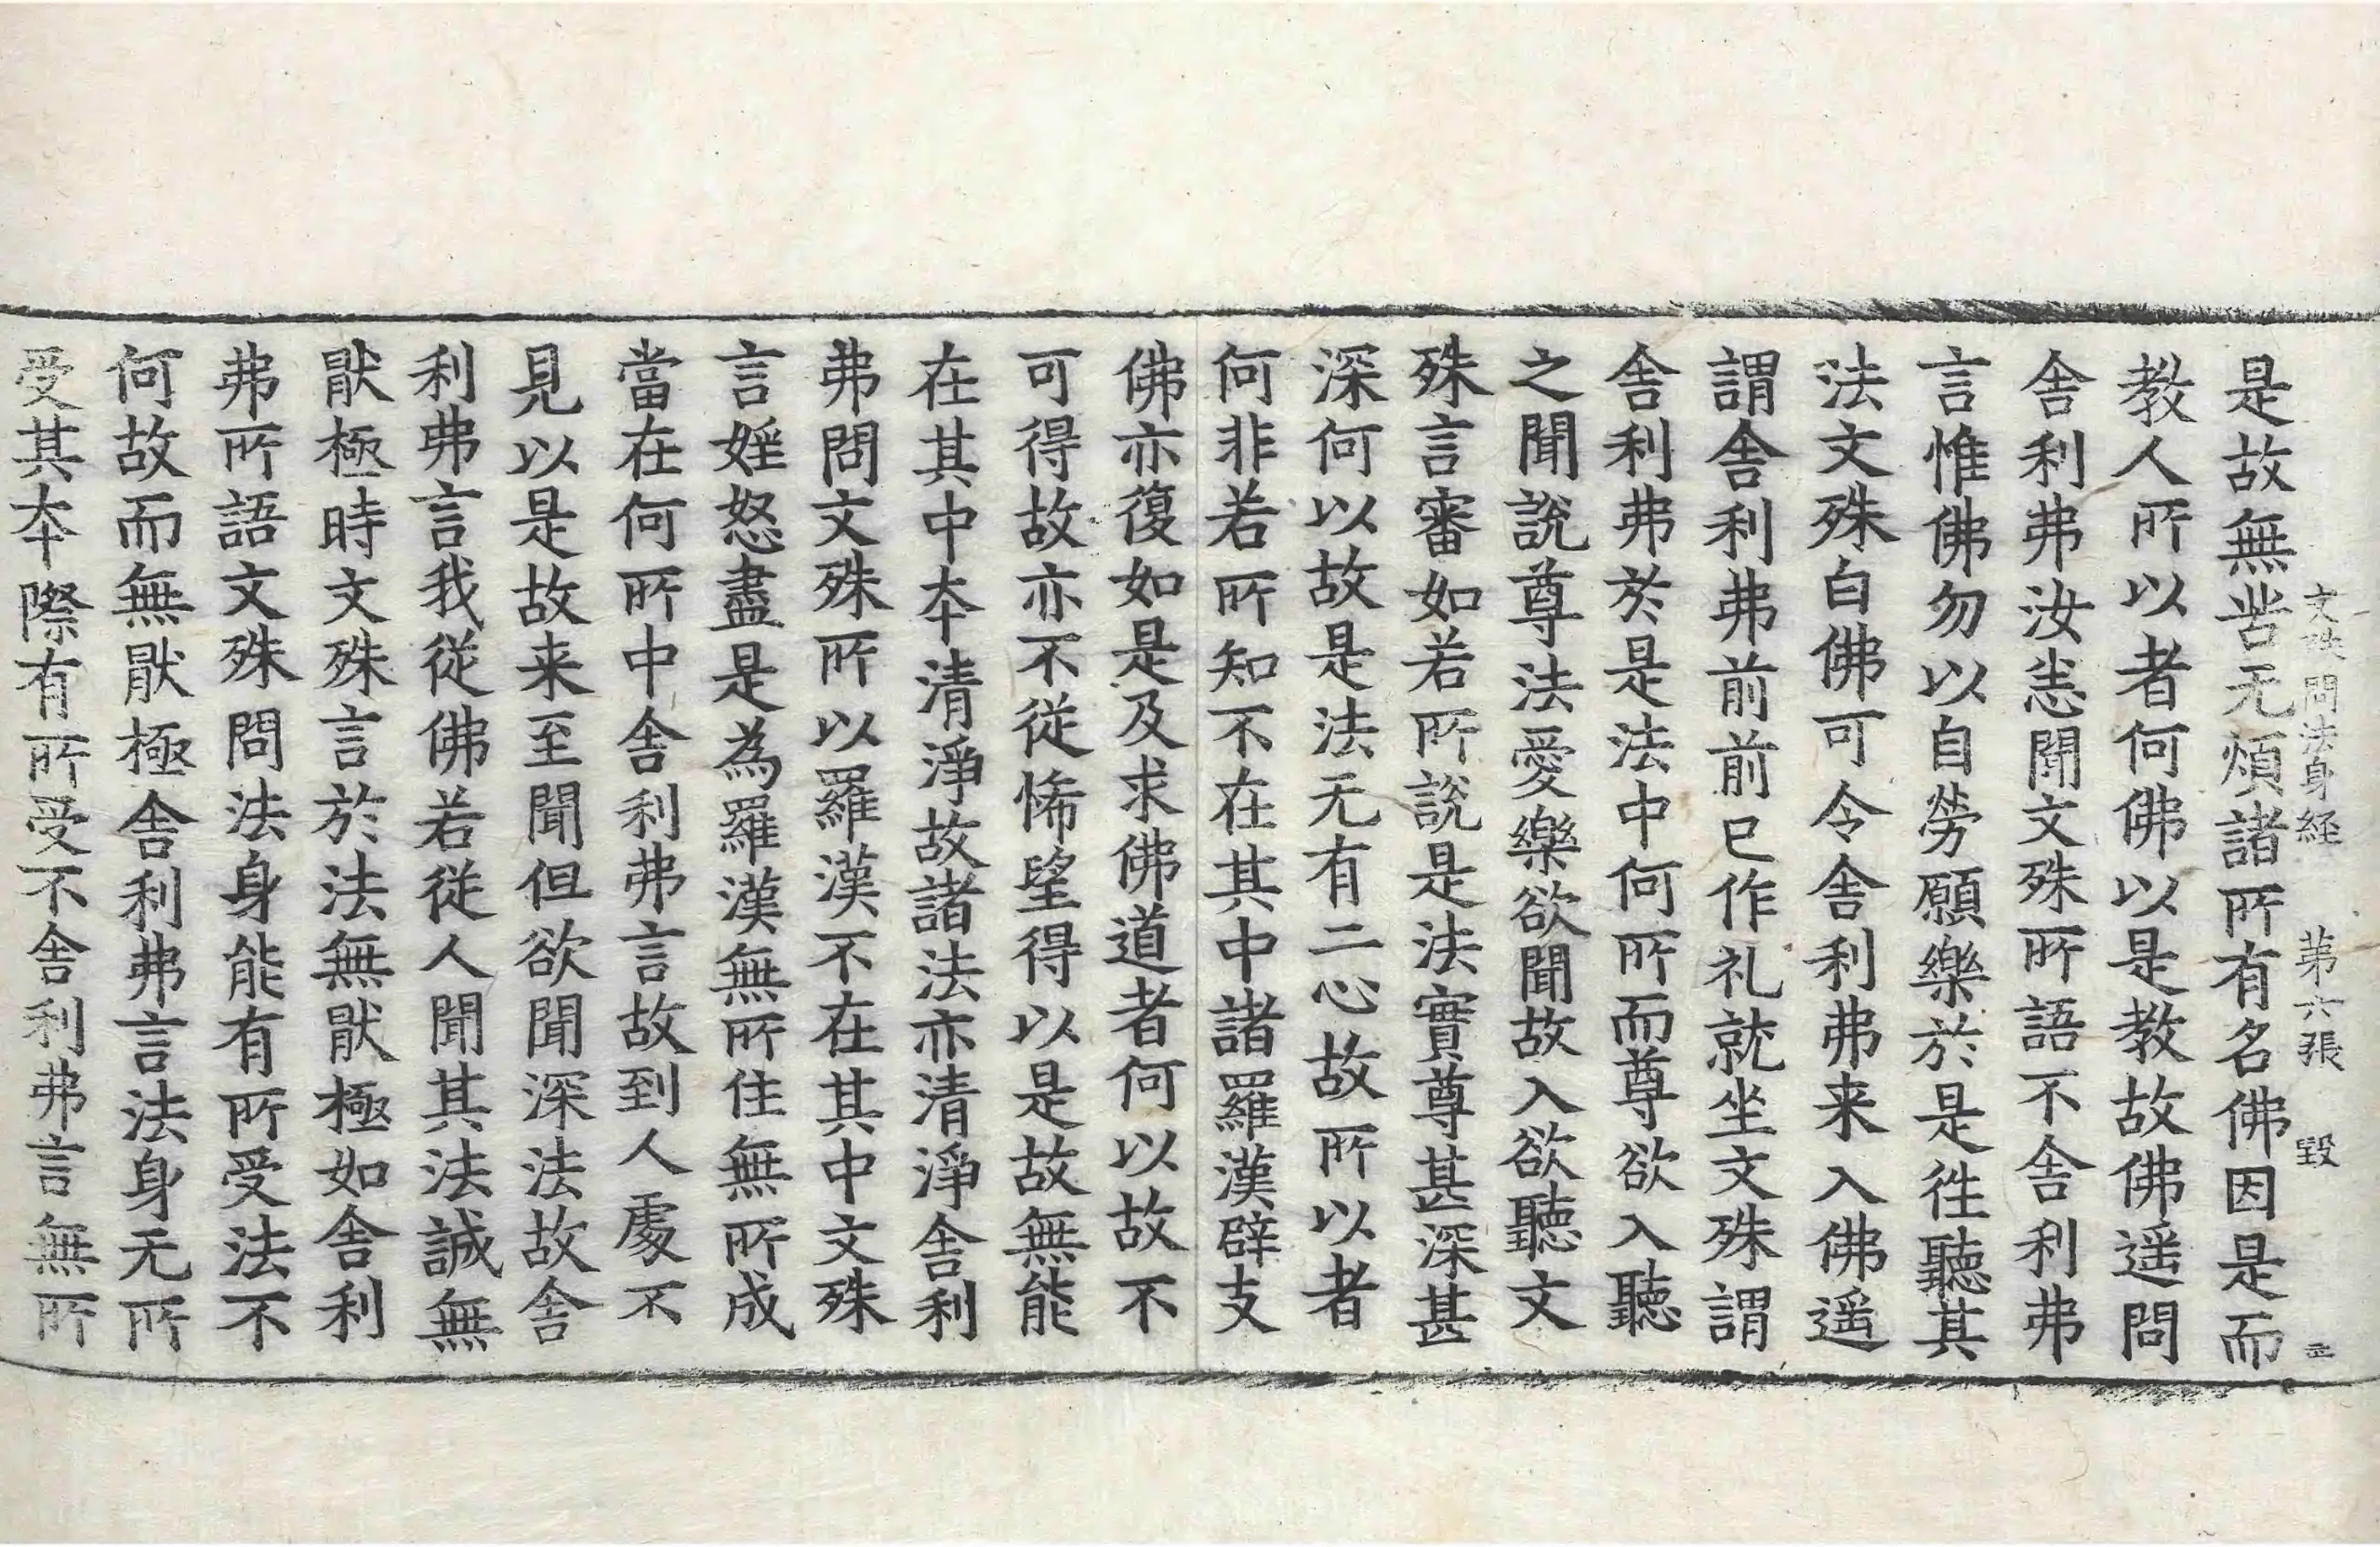 文殊問法身経　第六張　毀
是故無訾无煩諸所有名佛因是而
教人所以者何佛以是教故佛遥問
舎利弗汝恙聞文殊所語不舎利弗
言惟佛勿以自勞願樂於是徃聽其
法文殊白佛可令舎利弗来入佛遥
謂舎利弗前前已作礼就坐文殊謂
舎利弗於是法中何所而尊欲入聽
之聞說尊法愛樂欲聞故入欲聽文
殊言審如若所說是法實尊甚深甚
深何以故是法无有二心故所以者
何非若所知不在其中諸羅漢辟支
佛亦復如是及求佛道者何以故不
可得故亦不從悕望得以是故無能
在其中夲清淨故諸法亦清淨舎利
弗問文殊所以羅漢不在其中文殊
言婬怒盡是為羅漢無所住無所成
當在何所中舎利弗言故到人䖏不
見以是故来至聞但欲聞深法故舎
利弗言我從佛若從人聞其法誠無
猒極時文殊言於法無猒極如舎利
弗所語文殊問法身能有所受法不
何故而無猒極舎利弗言法身无所
受其夲際有所受不舎利弗言無所